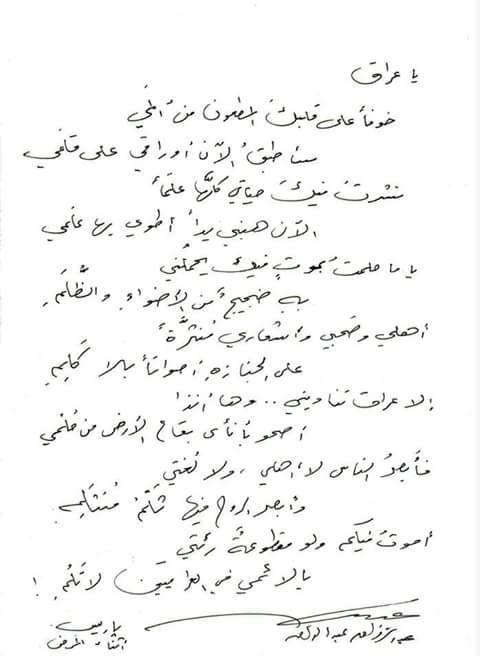 يا عراق
خوفاً على قلبك المطعون من ألمي
سأطبقُ الآن أوراقي على قلمي
نشرتُ فيك حياتي كلَّها علَماً
الآن هبني يداً أطوي بها علمي
يا ما حلمتُ بموتٍ فيك يحملُني
به ضجيجٌ من الأضواءِ والظُّلَمِ
أهلي وصَحبي وأشعاري مُنثَّرةً
على الجنازةِ أصواتاً بلا كَلِمِ
إلا عراق تناديني .. وها أنذا
أصحو بأنأى بقاع الأرض من حُلُمي
فأبصرُ الناس لا أهلي، ولا لغتي
وأبصر الروح فيها ثَلْمُ مُنْثَلِمِ
أموتُ فيكم ولو مقطوعةٌ رئتي
يا لائمي في العراقيين لا تَلُمِ !
عبد الرزاق عبد الواحد
باريس